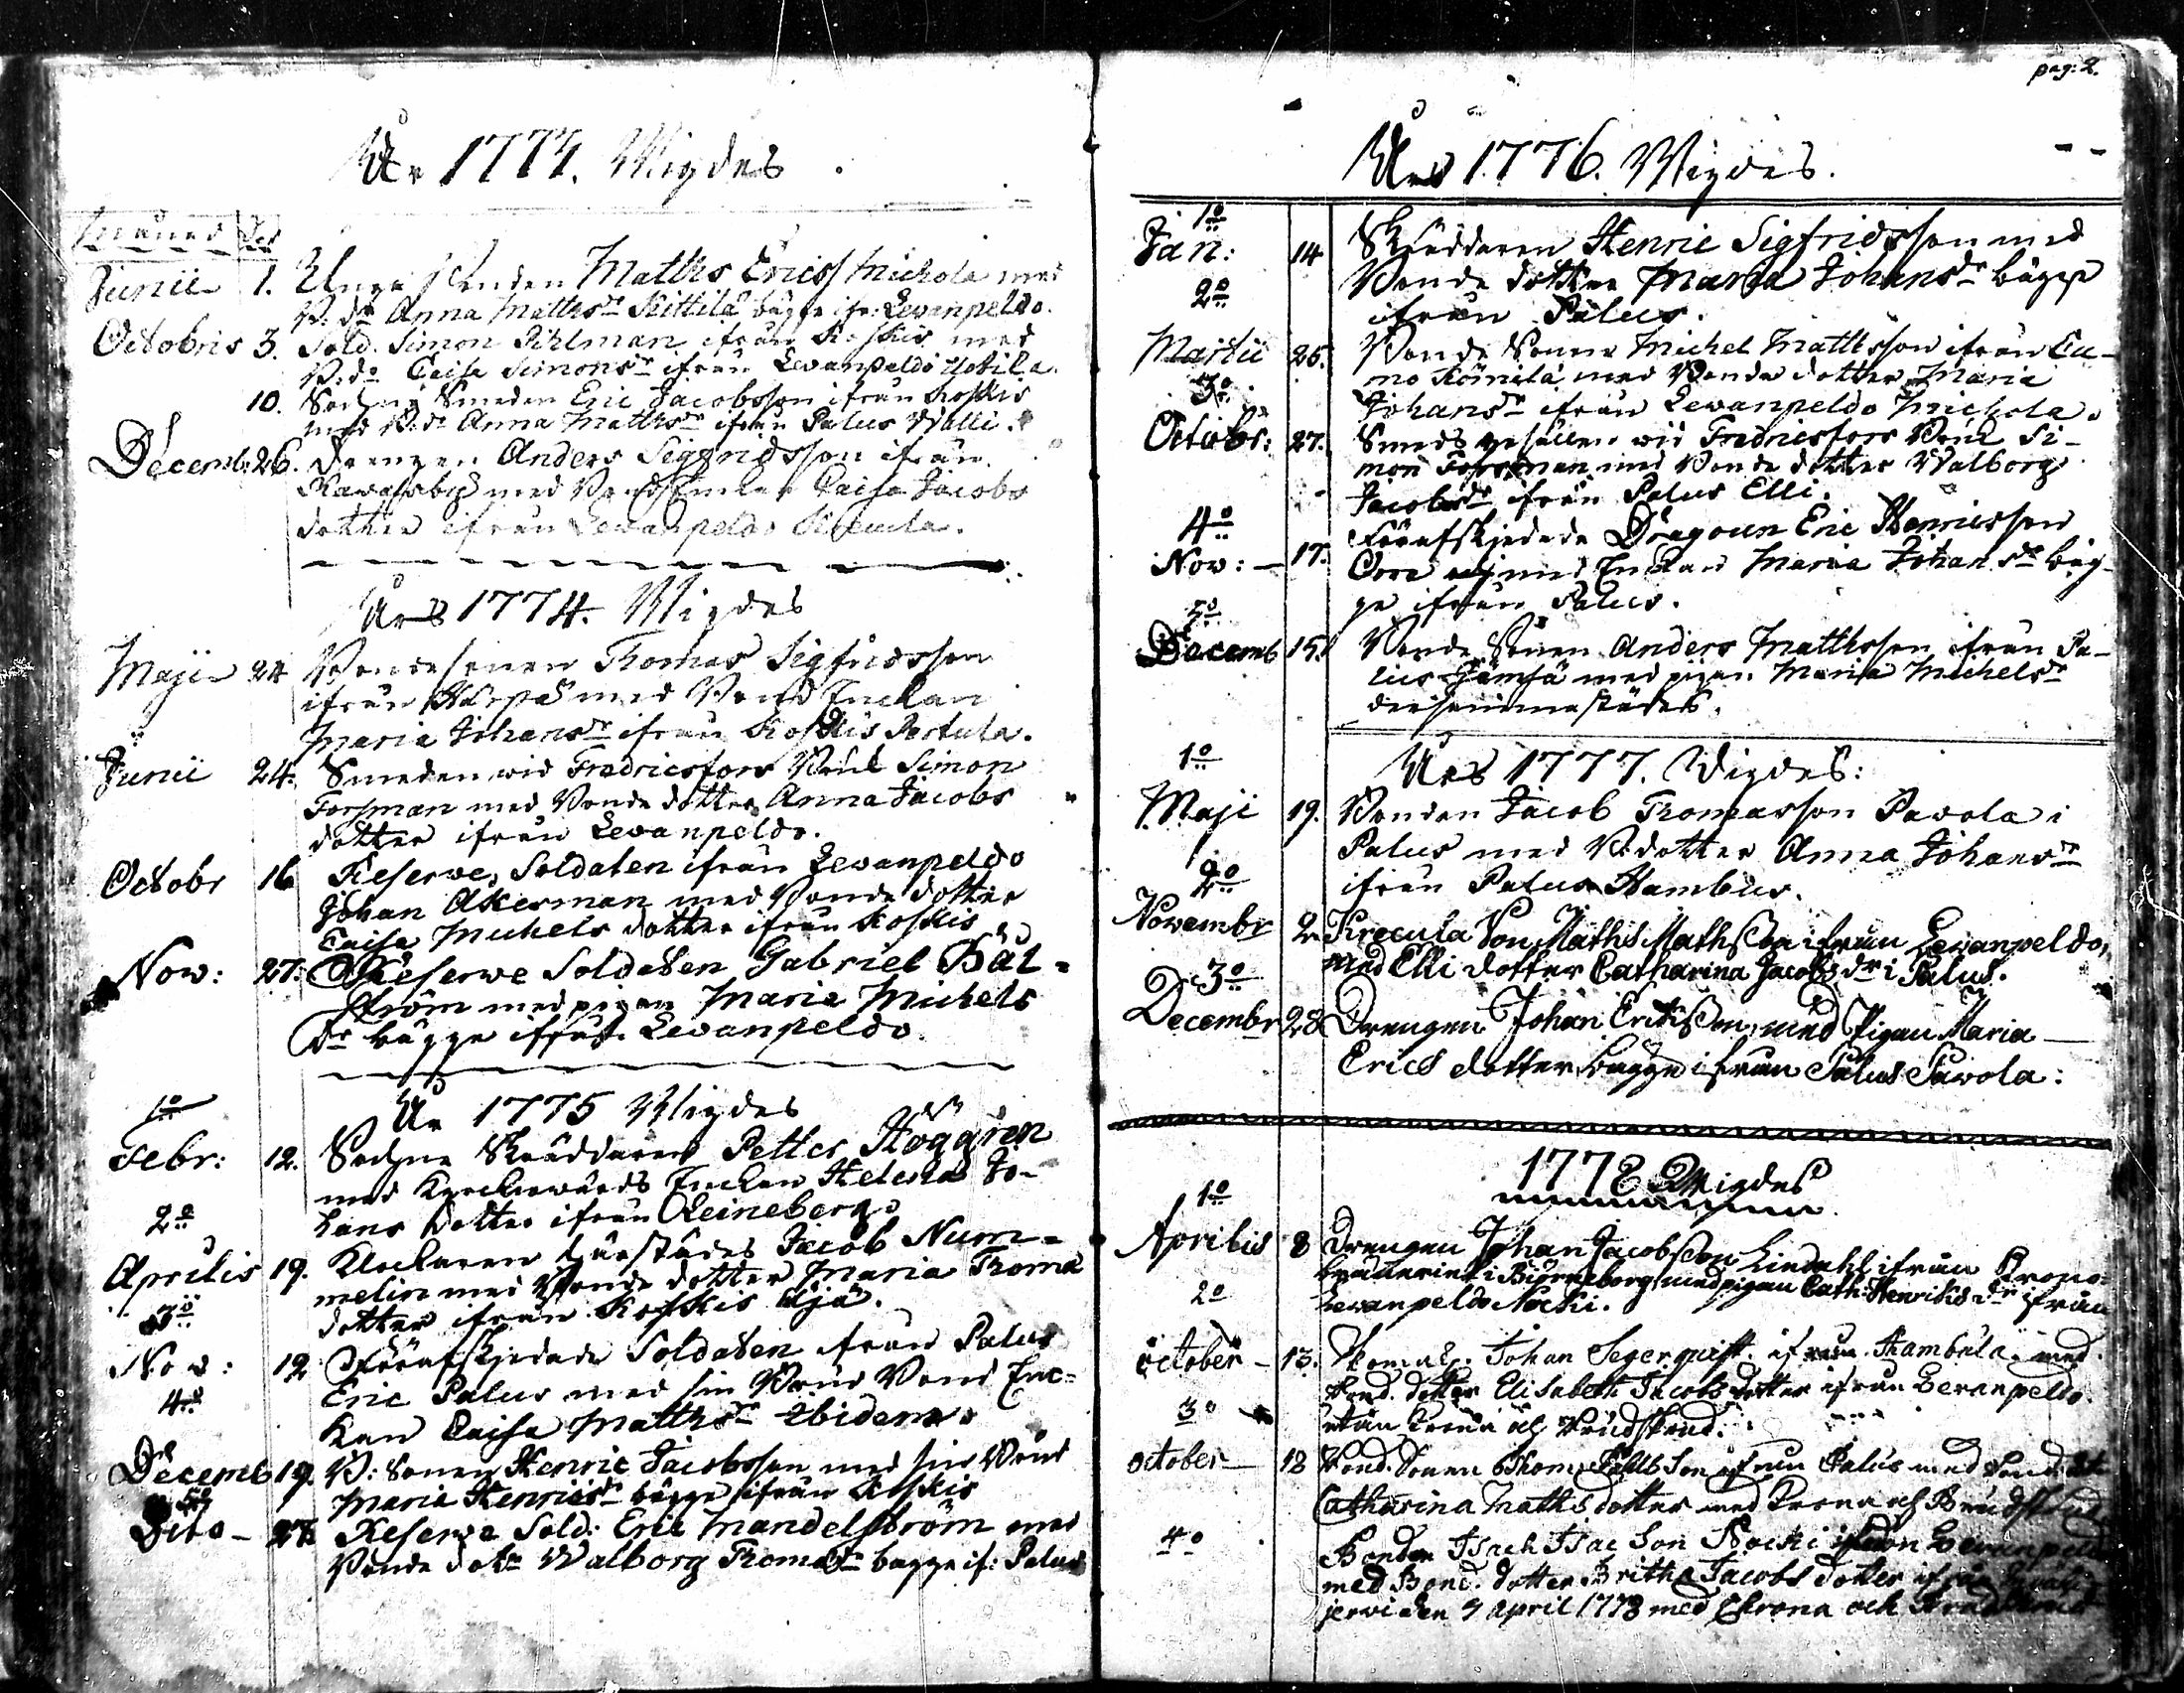 pag: 2.
År 1773. Wigdes
Månad
Junii 1. Unga Bonden Matths Ericss Michola med
B: dr Anna Matthsdr Kittilä bägge ifr: Lewanpeldo.
Octobris 3. Sold. Simon Pihlman ifrån Koskis med
B: dr Caisa Simonsdr ifrån Lewanpeldo Uotila.
10. Sochne Smeden Eric Jacobsson ifrån Koskis
med B: dr Anna Matthsdr ifrån Palus Walli.
Decemb. 26. Drengen Anders Sigfridsson ifrån
med Bond Enkan Caisa Jacobs
dotter ifrån Lewanpeldo
Års 1774. Wigdes
Maji 24 Bondesonen Thomas Sigfridsson
ifrån Harpå med Bond Enkan
Maria Johansdr ifrån Koskis Pertula.
Junii 24. Smeden wid Fredricsfors Bruk Simon
Forssman med Bonde dotter Anna Jacobs
dotter ifrån Lewanpeldo.
Octobr 16 Reserve Soldaten ifrån Lewanpeldo
Johan Åkerman med Bonde dotter
Caisa Michels dotter ifrån Koskis
Now: 27. Reserwe Soldaten Gabriel Båt-
ström med pigan Maria Michels
dr bägge ifrån Lewanpeldo.
År 1775 Wigdes
1o
Febr: 12. Sochne Skräddaren Petter Höggren
med Kyrckiowärds Enckan Helena Jo-
hans dotter ifrån Leineberg.
2o
Aprilis 19. Klockaren härstädes Jacob Num-
melin med Bonde dotter Maria Thoma
dotter ifrån Koskis Äijä.
3o
Now: 12 Förafskjedade Soldaten ifrån Palus
Eric Palus med sin Brud Bond Enc-
kan Caisa Matthsdr Ibidem.
4o
Decemb 19. B: Sonen Henric Jacobsson med sin Brud
Maria Henricsdr bägge ifrån Koskis
5o
Dito - 27. Reserve Sold: Eric Mandelström med
Bonde dotr Walborg Thomædr bägge if: Palus
Års 1776. Wigdes.
1o
Jan: 14 Skräddaren Henric Sigfridsson med
Bonde dotter Maria Johansdr bägge
ifrån Palus.
2o
Martii 25. Bonde Sonen Michel Matthsson ifrån Cu-
mo Kömilä med Bonde dotter Maria
Johansdr ifrån Lewanpeldo Michola.
3o
Octobr: 27. Smeds gesällen wid Fredricsfors Bruk Si-
mon Forssman med Bonde dotter Walborg
Jacobsdr ifrån Palus Elli.
4o
Now: 17. Förafskjedade Dragoun Eric Henricsson
Orre med Enckan Maria Johansdr bäg-
ge ifrån Palus.
5o
Decemb 15. Bonde Sonen Anders Matthsson ifrån Pa-
lus Jämsä med pigan Maria Michelsdr
dersammastädes.
Års 1777. Wigdes:
1o
Maji 19. Bonden Jacob Thomasson Pavola i
Palus med B:dotter Anna Johansdr
ifrån Palus Hambus.
2o
Novembr 2. Krecula Son Maths Mathsson ifrån Lewanpeldo,
med Elli dotter Catharina Jacobsdr i Palus.
3o
Decembr 28 Drengen Johan Ericsson med Pigan Maria
Erics dotter bägge ifrån Palus Pawola:
1778 Wigdes
1o
Aprilis 8 Drengen Johan Jacobsson Lindahl ifrån Krono-
bränneriet i Björneborg med pigan Cath: Henriksdr ifrån
Lewanpeldo Nocki.
2o
October - 13. Skomak. Johan Segerquist ifrån Hambula med
Bond. dotter Elisabeth Jacobs dotter ifrån Levanpeldo.
utan Krona och Brudskrud.
3o
October - 18 Bond. Sonen Thom. Son ifrån Palus med Bond.
Catharina Maths dotter med Krona och
4o
Bonden Isach Isac Son Nocki ifrån
med Bond. dotter Britha Jacobs dotter ifrån
jervi den 4 April 1778 med Krona och